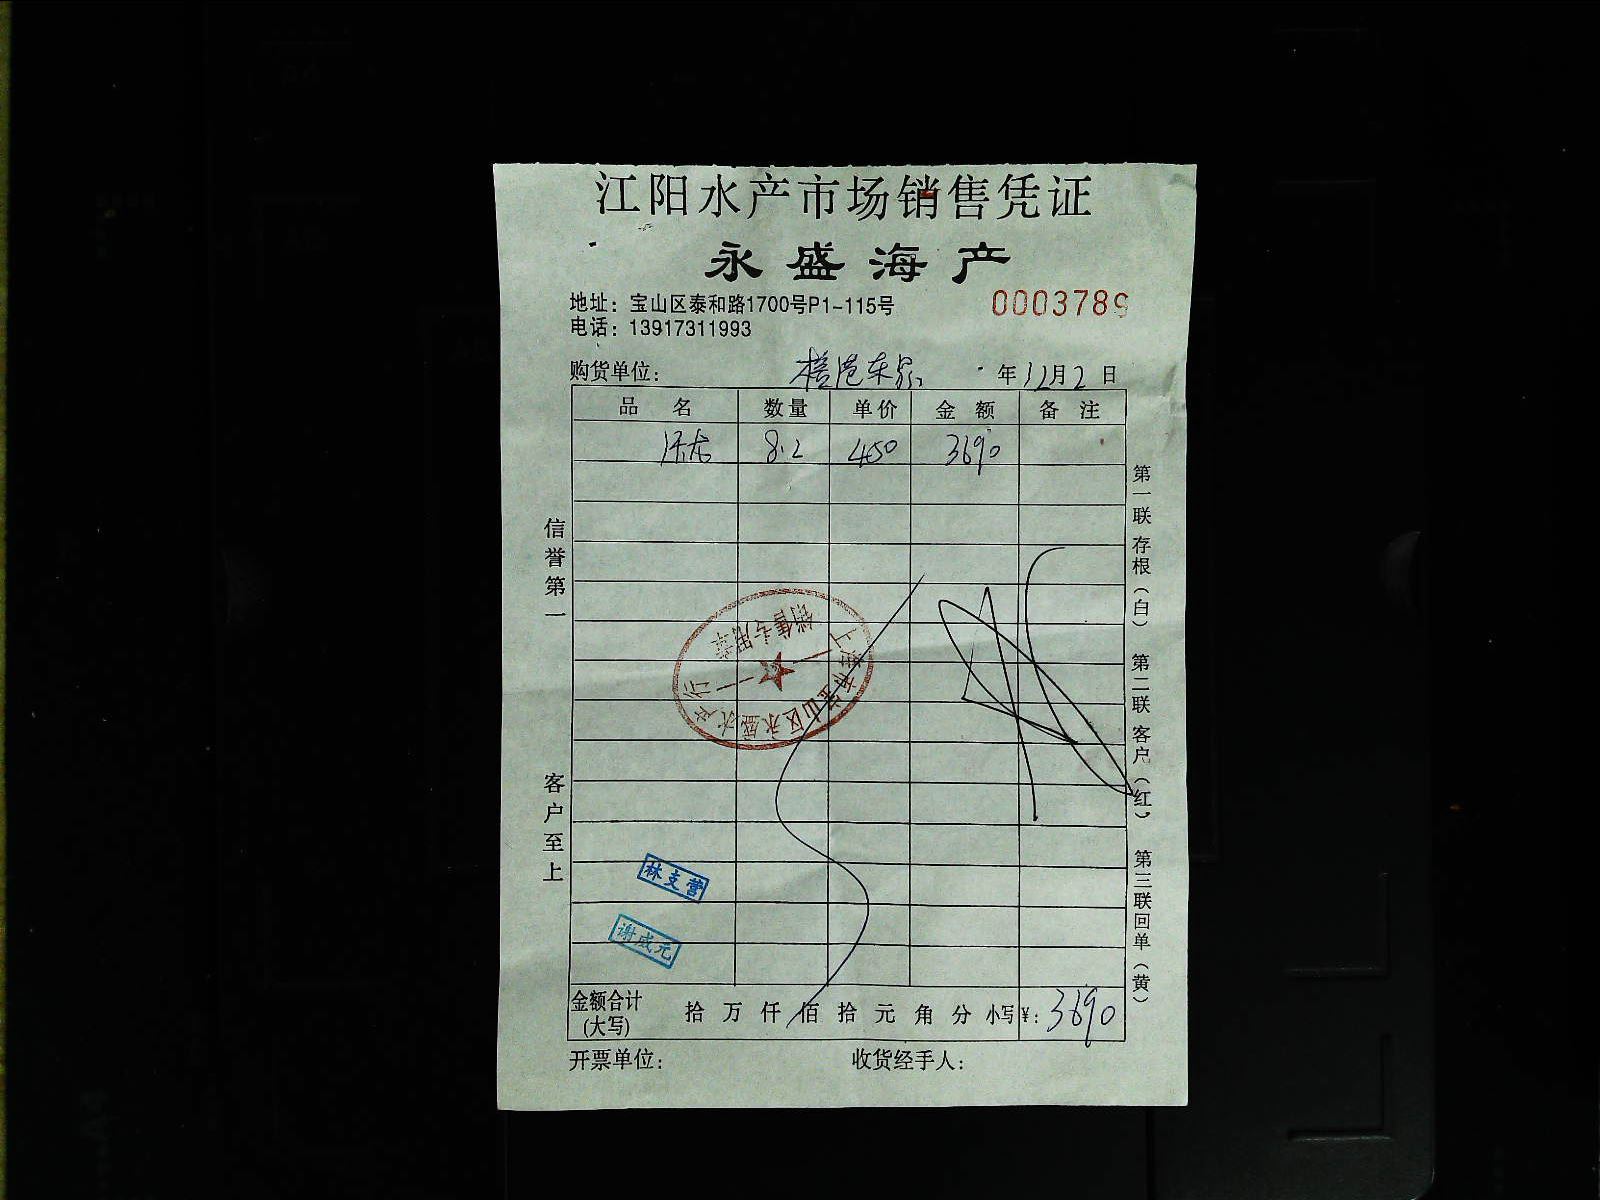 江阳水产市场销售凭证
永盛海产
地址：宝山区泰和路1700号P1-115号
0003789
电话：13917311993
购货单位： 年12月2日
品名 数量 单价 金额 备注
8.2 450 3690
信誉第一
客户至上
第一联 存根（白） 第二联 客户（红） 第三联 回单（黄）
上海市宝山区永盛水产行
销售专用章
林支营
谢成元
金额合计(大写) 拾 万 仟 佰 拾 元 角 分 小写¥：3690
开票单位： 收货经手人：